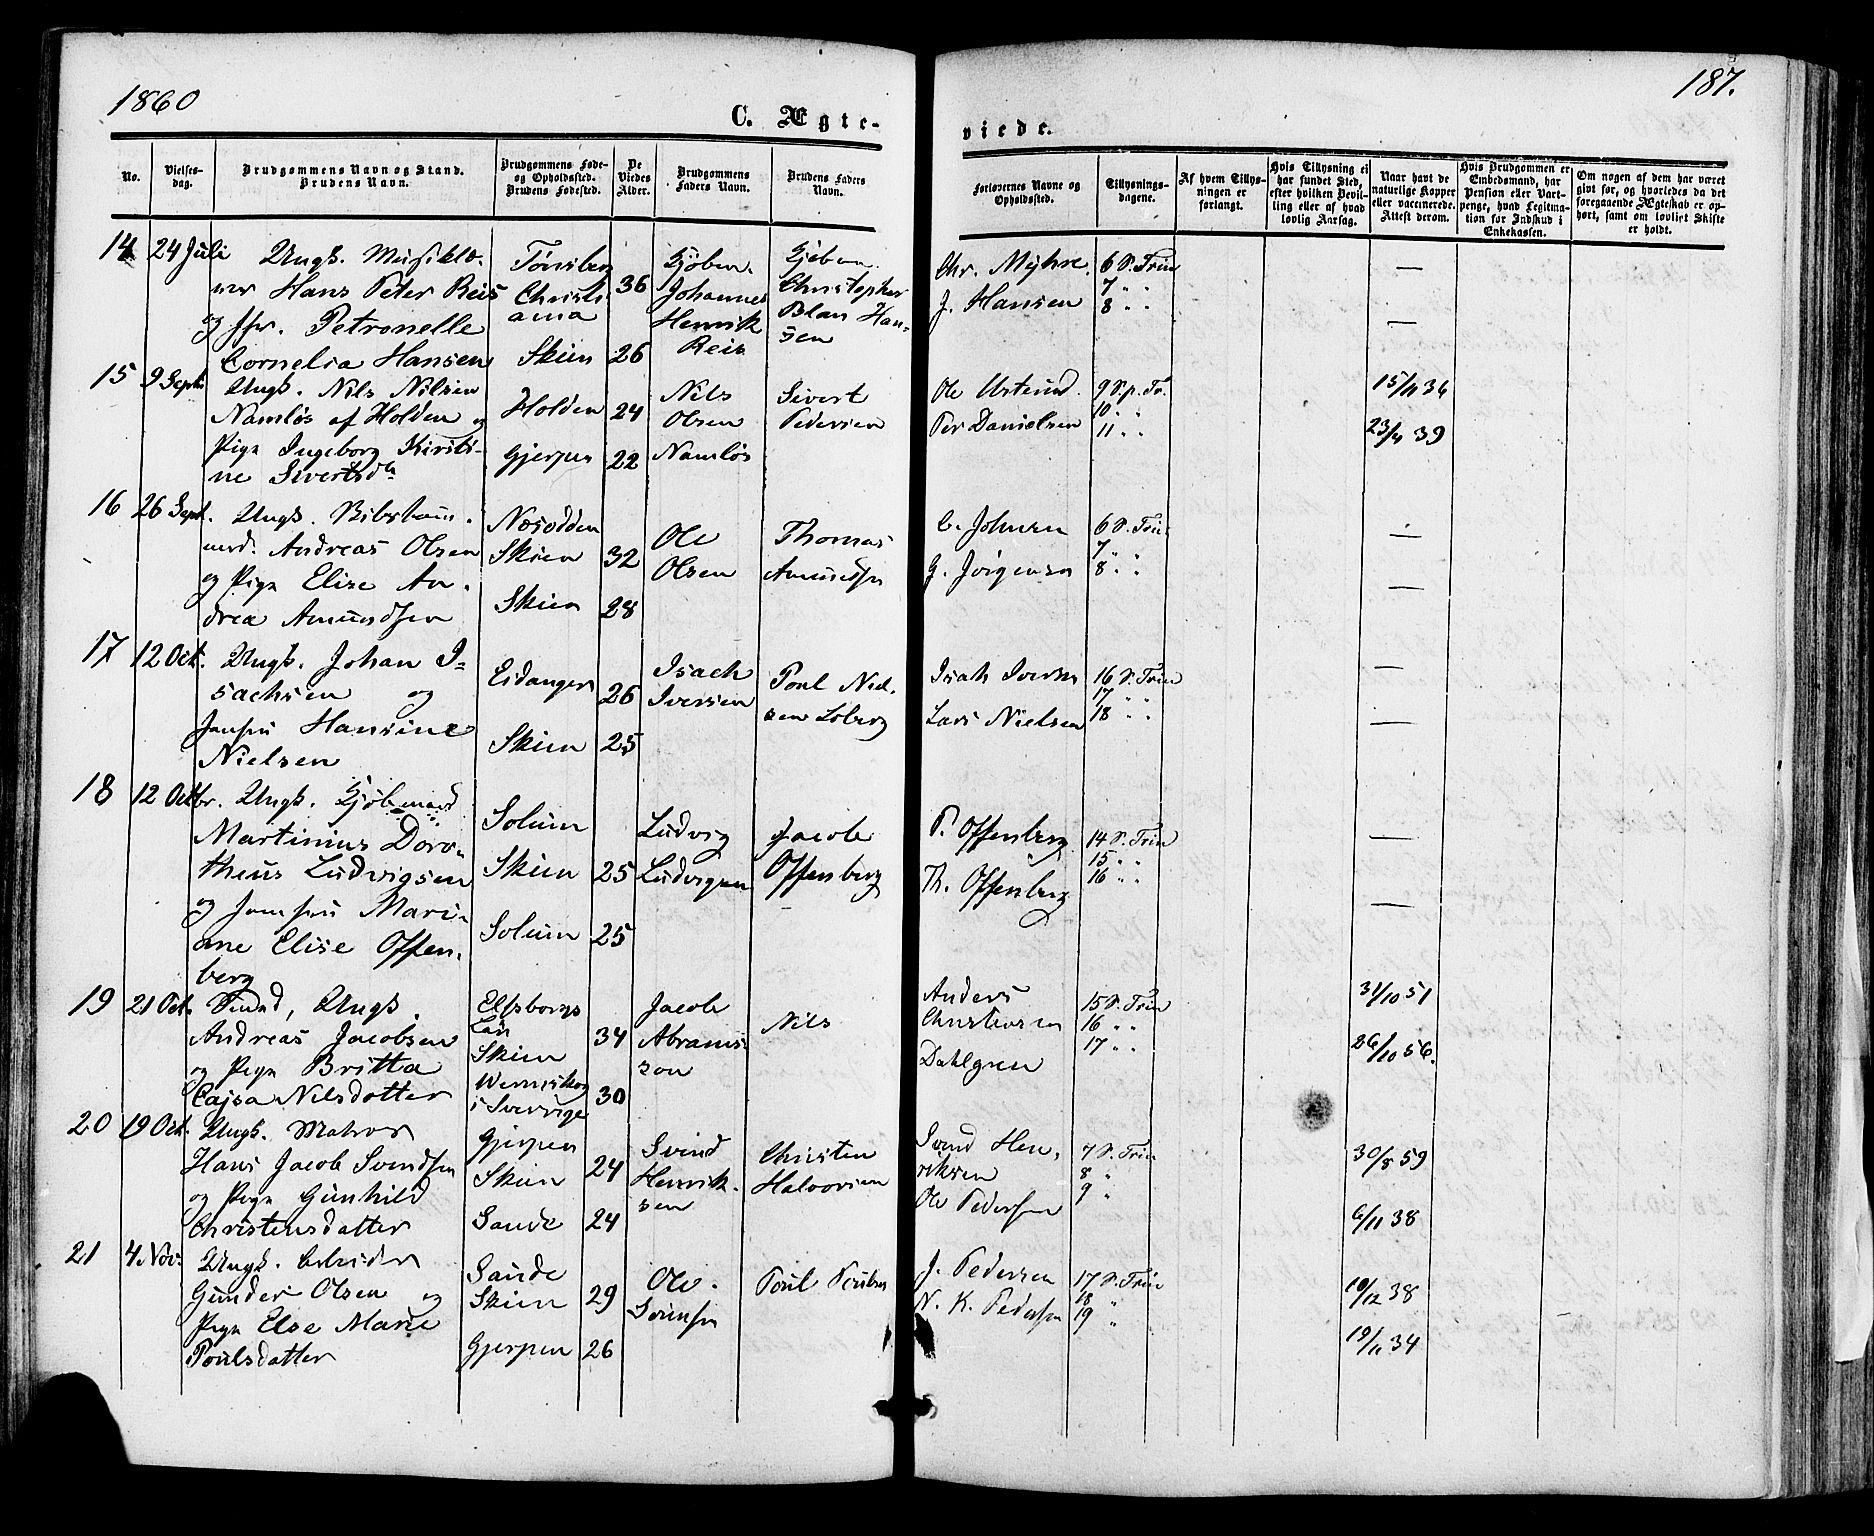 1860
187.
C. Ægte-
viede.
No.
Vielses-
dag.
Brudgommens Navn og Stand.
Brudens Navn.
Brudgommens Føde-
og Opholdssted.
Brudens Fødested.
De
Viedes
Alder.
Brudgommens
Faders Navn.
Brudens Faders
Navn.
Forlovernes Navne og
Opholdssted.
Tillysnings-
dagene.
Af hvem Tillys-
ningen er
forlangt.
Hvis Tillysning ei
har fundet Sted,
efter hvilken Bevil-
ling eller af hvad
lovlig Aarsag.
Naar havt de
naturlige Kopper
eller vaccinerede.
Attest derom.
Hvis Brudgommen er
Embedsmand, har
Pension eller Vart-
penge, hvad Legitima-
tion for Indskud i
Enkekassen.
Om nogen af dem har været
givt før, og hvorledes da det
foregaaende Ægteskab er op-
hørt, samt om lovligt Skifte
er holdt.
14 24 Juli
Ungk. Musiklæ-
rer Hans Peter Reis
og Jfr. Petronelle
Cornelia Hansen
Tønsberg
Christi
ania
Skien
36
26
Kjøbm.
Johannes
Henrik
Reis
Kjøbm.
Christopher
Blau Han-
sen
Chr. Myhre
J. Hansen
6 S. Trin
7 " "
8 " "
—
—
15 9 Septr
Ungk. Nils Nilsen
Namløs af Holden og
Pige Ingeborg Kirsti-
ne Sivertsdr
Holden
Gjerpen
24
22
Nils
Olsen
Namløs
Sivert
Pedersen
Ole
Per Danielsen
9 S. p. Tr.
10 " "
11 " "
15/11 36
23/4 39
16 26 Sept.
Ungk.
Andreas Olsen
og Pige Elise An-
drea Amundsen
Næsodden
Skien
Skien
32
28
Ole
Olsen
Thomas
Amundsen
C. Johnsen
G. Jörgensen
6 S. Trin
7 " "
8 " "
—
—
17 12 Oct.
Ungk. Johan I-
sachsen og
Jomfru Hansine
Nielsen
Eidanger
Skien
26
25
Isach
Iversen
Poul Niel-
sen Loberg
Isak Iversen
Lars Nielsen
16 S. Trin
17 " "
18 " "
—
—
18 12 Octbr.
Ungk. Kjöbmand
Martinius Doro-
theus Ludvigsen
og Jomfru Mari-
ane Elise Offen-
berg
Solum
Skien
Solum
25
25
Ludvig
Ludvigsen
Jacob
Offenberg
P. Offenberg
Th. Offenberg
14 S. Trin
15 " "
16 " "
—
—
19 21 Oct.
Ungk.
Andreas Jacobsen
og Pige Britta
Cajsa Nilsdotter
Elfsborgs
Län
Skien
Wernskog
i Sverrige
34
30
Jacob
Abrams-
son
Nils
Anders
Christensen
Dahlgren
15 S. Trin
16 " "
17 " "
31/10 51
26/10 56.
20 19 Oct.
Ungk. Matros
Hans Jacob Svendsen
og Pige Gunhild
Christensdatter
Gjerpen
Skien
Sande
24
24
Svend
Henrik-
sen
Christen
Halvorsen
Svend Hen-
riksen
Ole Pedersen
7 S. Trin
8 "
9 "
30/8 59
6/11 38
21 4. Nov.
Ungk. Arbeider
Gunder Olsen og
Pige Else Marie
Poulsdatter
Sande
Skien
Gjerpen
29
26
Ole
Sörensen
Poul Poulsen
J. Pedersen
N. K. Pedersen
17 S. Trin
18 "
19 "
10/12 38
19/11 34